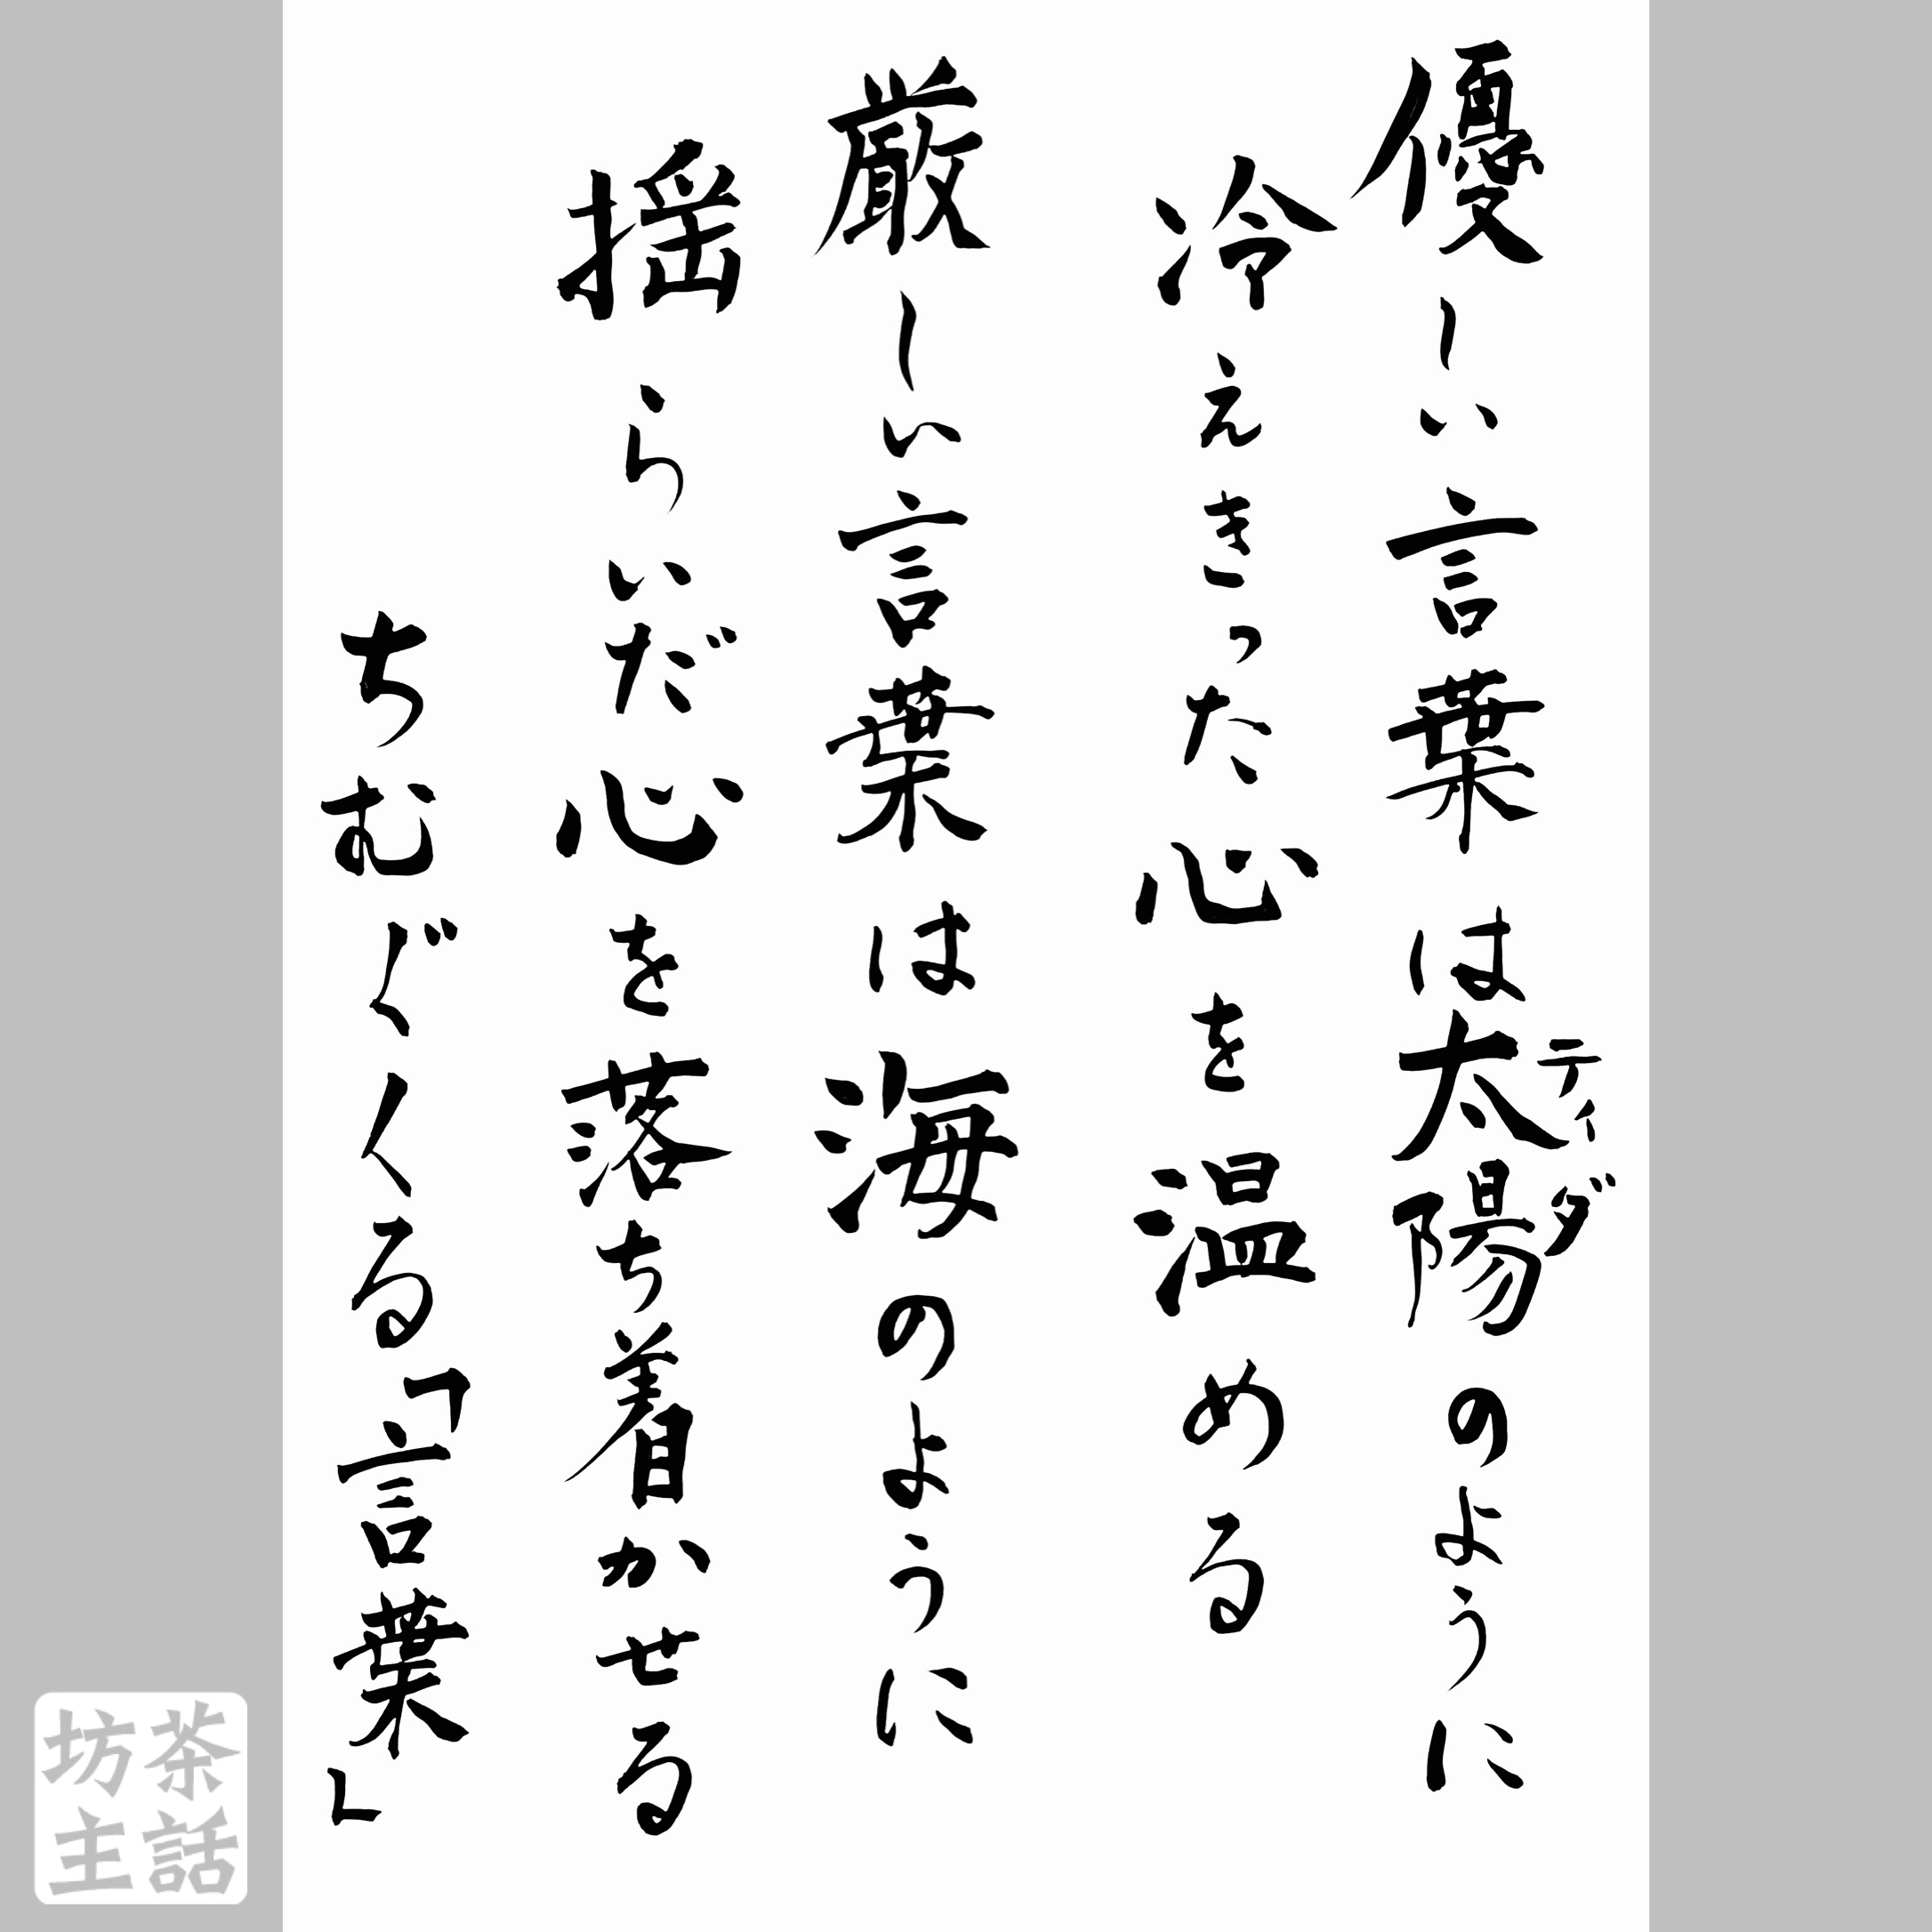 優しい言葉は太陽のように
ティダ
冷えきった心を温める
厳しい言葉は海のように
揺らいだ心を落ち着かせる
ちむぐくる「言葉」
茶話
坊主